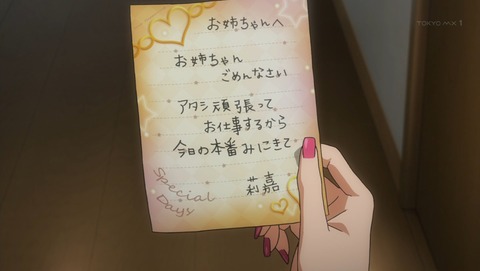 TOKYO MX 1
お姉ちゃんへ
お姉ちゃん
ごめんなさい
アタシ頑張って
お仕事するから
今日の本番みにきて
莉嘉
Special
Days